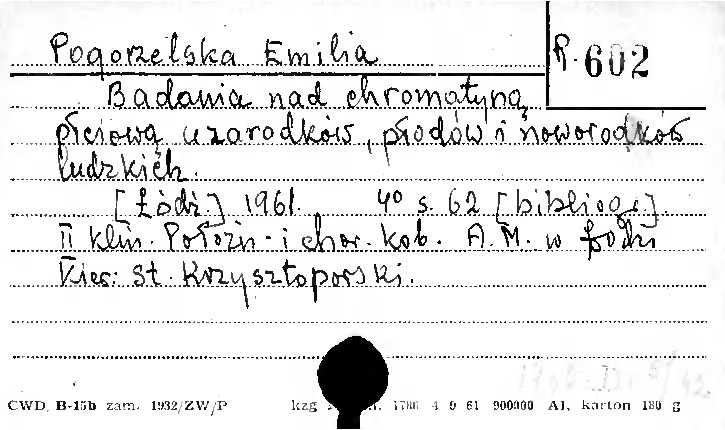 Pogorzelska Emilia
R. 602
Badania nad chromatyną
płciową u zarodków, płodów i noworodków
ludzkich.
[Łódź] 1961. 4° s. 62 [bibliogr].
II Klin. Położn. i chor. kob. A.M. w Łodzi
Kier: St. Krzysztoporski.
CWD, B-15b zam. 1932/ZW/P kzg 1786 4 9 61 900000 A1, karton 180 g